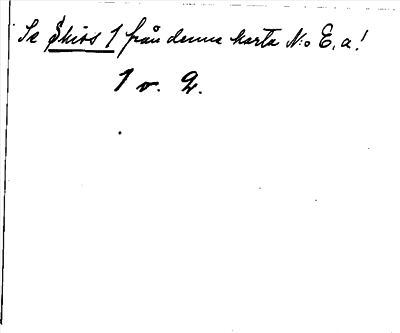 Se Skiss 1 från denna karta N:o E, a!
1 v. 2.